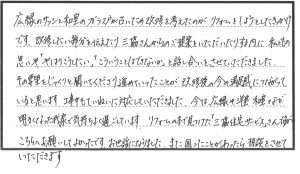 広縁のサッシと和室のガラス戸が古いため改修を考えたのがリフォームをしようとしたきっかけ
です。改修したい部分を伝えたり三協さんからのご提案をいただいたりする内に私たちの
思いや「やはりこうしたい」「こういうことはできないか」と話し合いをさせていただきました。
その要望をじっくりと聞いてくださり進めていったことが改修後の今の満足感につながって
いると思います。工事中もていねいに対応していただきました。今は広縁や洋室、和室などが
明るくなった我家で気持ちよく過ごしています。リフォームの本で見つけた「三協住宅サービス」さん
こちらへお願いしてよかったです。お世話になりました。また困ったことがあったら相談をさせて
いただきます